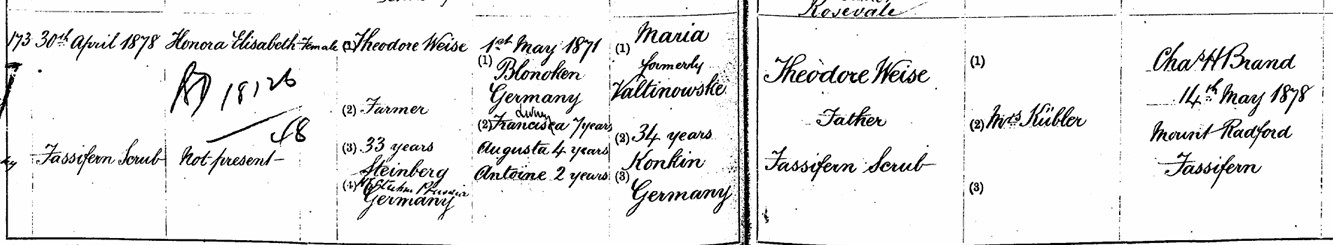 Rosevale
173 30th April 1878 Honora Elisabeth Female (1) Theodore Weise 1st May 1871 (1) Maria
(1) Blonoken formerly
Germany Valtinowske
BD 18126
48
(2) Farmer living
(2) Francisca 7 years (2) 34 years
Fassifern Scrub Not present (3) 33 years Augusta 4 years Konkin
Steinberg Antoine 2 years (3) Germany
(4) Stuhm Prussia
Germany
Theodore Weise (1) Chas H Brand
14th May 1878
Father (2) Mrs Kübler Mount Radford
Fassifern Scrub Fassifern
(3)